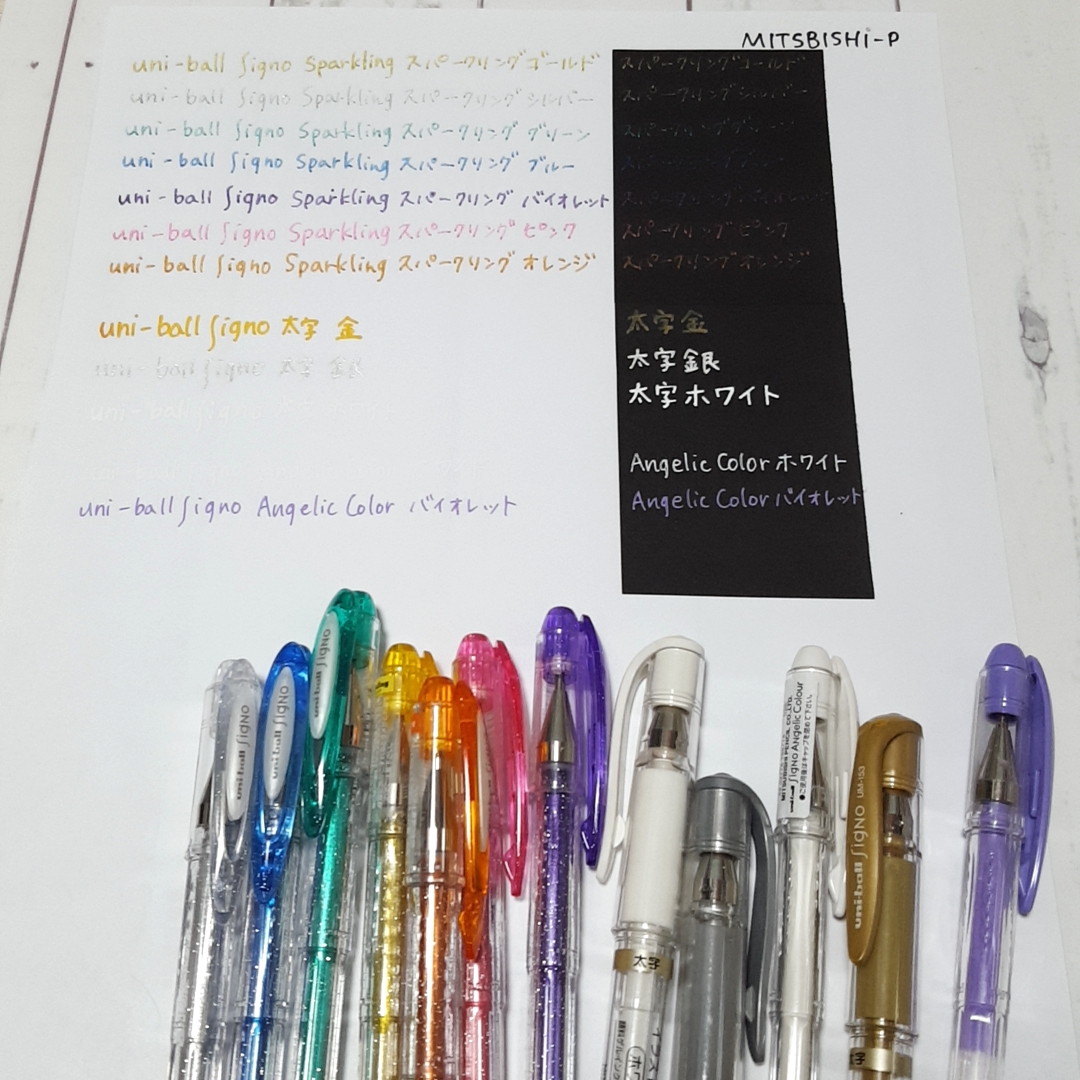 MITSBISHi-P
uni-ball Signo Sparkling スパークリングゴールド スパークリングゴールド
uni-ball Signo Sparkling スパークリングシルバー スパークリングシルバー
uni-ball Signo Sparkling スパークリング グリーン スパークリンググリーン
uni-ball Signo Sparkling スパークリング ブルー
uni-ball Signo Sparkling スパークリング バイオレット スパークリングバイオレット
uni-ball Signo Sparkling スパークリング ピンク スパークリングピンク
uni-ball Signo Sparkling スパークリング オレンジ スパークリングオレンジ
uni-ball Signo 太字 金 太字金
uni-ball Signo 太字 銀 太字銀
uni-ball Signo 太字ホワイト
Angelic Color ホワイト
uni-ball Signo Angelic Color バイオレット Angelic Color バイオレット
uni-ball SigNO
uni-ball SigNO
uni-ball SigNO
太字
MITSUBISHI PENCIL CO.,LTD.
uni-ball SigNO Angelic Colour
●ご使用後はキャップを閉めて下さい。
uni-ball SigNO UM-153
太字